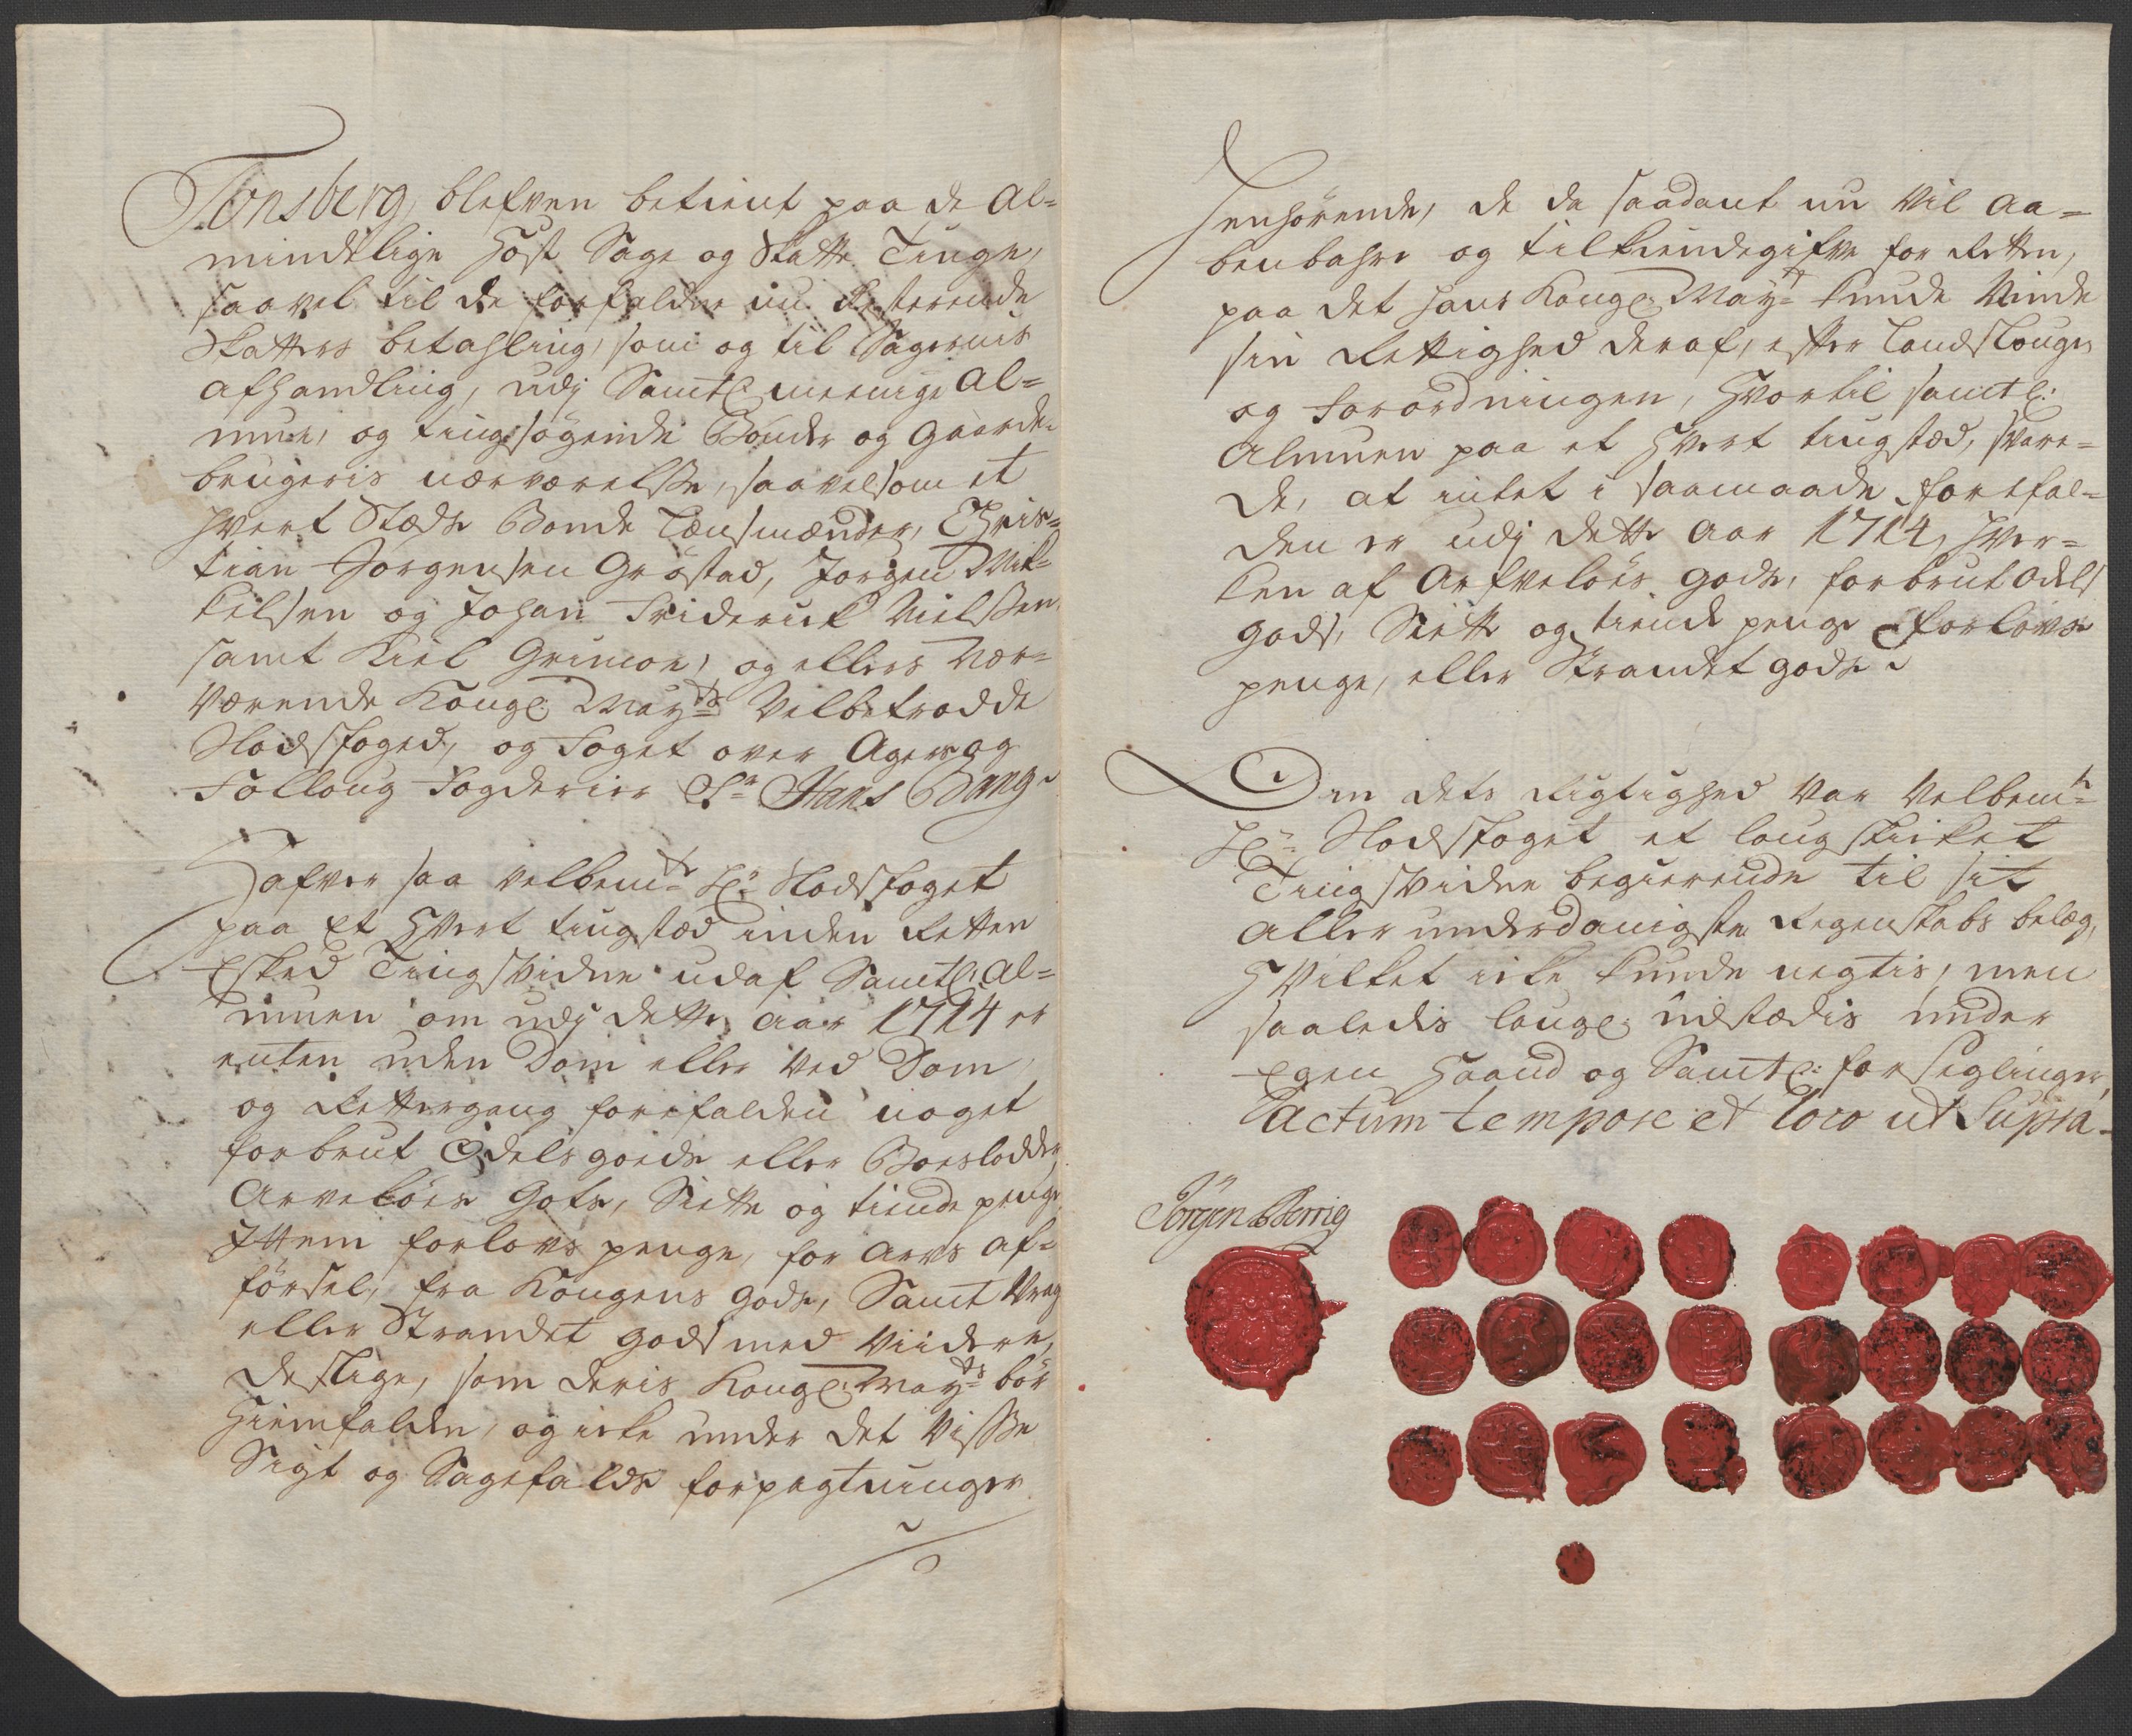 Tonsberg, blefven betient paa de Al=
mindelige Høst Sage og Skatte Tinge,
saavel til de forfaldne nu Resterende
Skatters betahling, som og til Sagernis
afhandling, udj Samtl: meenige Al=
mue, og tingsøgende Bønder og Gaarde-
brugeris nærværelsse, saavelsom et
hvert Stæds Bonde Lensmænder, Chris=
tian Jørgensen Grøstad, Jørgen Mik-
kelsen og Johan Friderick Nielssen
samt Kiel Grimon, og ellers nær=
værende Kongl: Mayts Velbetrodde
Slodsfoged, og Foget over Agers og
Folloug Fogderier Sr Hans Bang
Hafver saa velbemte Hr Slodsfoget
paa Et hvert tingstæd inden Retten
Esked Tingsvidne udaf Samtl: Al=
muen om udj dette aar 1714 er
enten uden Dom eller ved Dom
og Rettergang forefalden noget
forbrut Odels goeds eller Boeslodder
Arveløes Gots, Siette og tiende penge
Ittem forlovs penge, for Arvs af=
førsel, fra Kongens gods, Samt Vrag
eller Strandet gods med Viidere,
deslige, som deris Kongl: Mayts bør
hiemfalden, og icke under det Visse
Sigt og Sagefalds forpagtninger
henhørende, de da saadant nu vil Aa=
benbahre og tilkiendegifve for Retten,
paa det hans Kongl: Mayt kunde Vinde
sin Rettighed deraf, efter Landslougen
og Forordningen, hvortil samtl:
Almuen paa et hvert tingstæd, svare=
de, at intet i saamaade forefal=
den er udj dette Aar 1714, hver=
ken af Arfveløes gods, forbrut odels
gods, Siette og tiende penge forlovs
penge, eller Strandet gods
Om dets Rigtighed var Velbemte
Hr Slodsfoget et lougskicket
Tingsvidne begierende til sit
aller underdanigste Regenskabs belæg,
hvilket icke kunde negtis, men
saaledis lougl: udstædis under
Egen Haand og Samtl: forseglinger,
actum tempore et loco ut Supra.
Jørgen Werrig